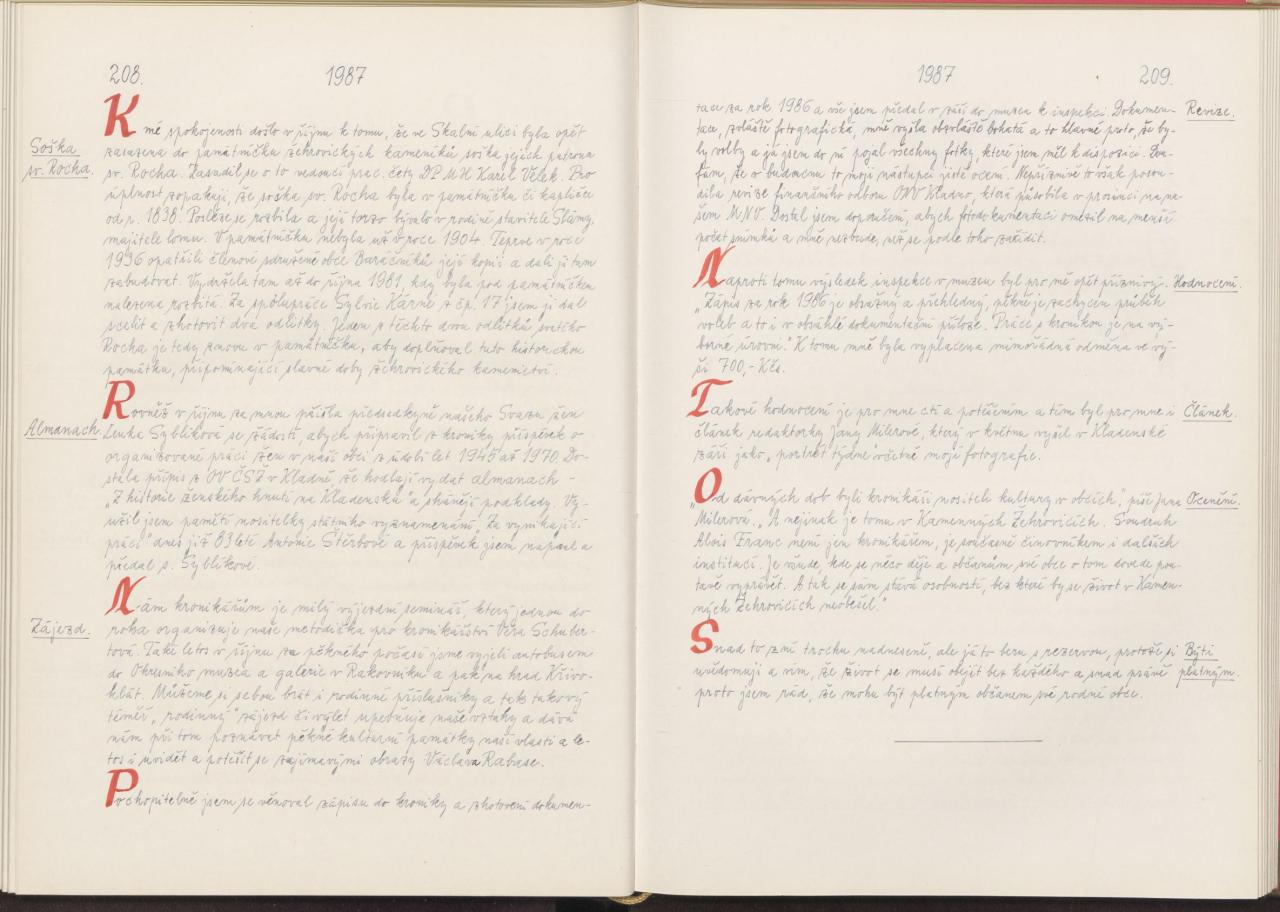 208.
1987
Soška
sv. Rocha.
K mé spokojenosti došlo v říjnu k tomu, že ve Skalní ulici byla opět
zasazena do památníčku žehrovických kameníků soška jejich patrona
sv. Rocha. Zasadil se o to vedoucí prac. čety DPMH Karel Vlček. Pro
úplnost zopakuji, že soška sv. Rocha byla v památníčku či kapličce
od r. 1838. Posléze se rozbila a její torzo bývalo v rodině stavitele Slámy,
majitele lomu. V památníčku nebyla už v roce 1904. Teprve v roce
1936 opatřili členové sdružené obce Baráčníků její kopii a dali ji tam
zabudovat. Vydržela tam až do října 1981, kdy byla pod památníčkem
nalezena rozbitá. Za spolupráce Sylvie Kárné z čp. 17 jsem ji dal
scelit a zhotovit dva odlitky. Jeden z těchto dvou odlitků svatého
Rocha je tedy znovu v památníčku, aby doplňoval tuto historickou
památku, připomínající slavné doby žehrovického kamenictví.
Almanach.
Rovněž v říjnu za mnou přišla předsedkyně našeho Svazu žen
Lenka Syblíková se žádostí, abych připravil z kroniky příspěvek o
organizované práci žen v naší obci z údobí let 1945 až 1970. Do-
stala přípis z OV ČSŽ v Kladně, že hodlají vydat almanach -
„Z historie ženského hnutí na Kladensku" a shánějí podklady. Vy-
užil jsem paměti nositelky státního vyznamenání „Za vynikající
práci" dnes již 83leté Antonie Štěrbové a příspěvek jsem napsal a
předal s. Syblíkové.
Zájezd.
Nám kronikářům je milý výjezdní seminář, který jednou do
roka organizuje naše metodička pro kronikářství Věra Schuber-
tová. Také letos v říjnu za pěkného počasí jsme vyjeli autobusem
do Okresního muzea a galerie v Rakovníku a pak na hrad Křivo-
klát. Můžeme si sebou brát i rodinné příslušníky a tak takový
téměř „rodinný" zájezd či výlet upevňuje naše vztahy a dává
nám při tom poznávat pěkné kulturní památky naší vlasti a le-
tos i uvidět a potěšit se zajímavými obrazy Václava Rabase.
Pochopitelně jsem se věnoval zápisu do kroniky a zhotovení dokumen-
1987
209.
Revize.
tace za rok 1986 a vše jsem předal v září do muzea k inspekci. Dokumen-
tace, zvláště fotografická, mně vyšla obzvláště bohatá a to hlavně proto, že by-
ly volby a já jsem do ní pojal všechny fotky, které jsem měl k dispozici. Dou-
fám, že v budoucnu to moji nástupci jistě ocení. Nepříznivě to však posou-
dila revize finančního odboru ONV Kladno, která působila v prosinci na na-
šem MNV. Dostal jsem doporučení, abych fotodokumentaci omezil na menší
počet snímků a mně nezbude, než se podle toho zařídit.
Hodnocení.
Naproti tomu výsledek inspekce v muzeu byl pro mě opět příznivý.
„Zápis za rok 1986 je obsažný a přehledný, pěkně je zachycen průběh
voleb a to i v obsáhlé dokumentační příloze. Práce s kronikou je na vý-
borné úrovni." K tomu mně byla vyplacena mimořádná odměna ve vý-
ši 700,- Kčs.
Článek.
Takové hodnocení je pro mne ctí a potěšením a tím byl pro mne i
článek redaktorky Jany Milerové, který v květnu vyšel v Kladenské
záři jako „portrét týdne včetně mojí fotografie.
Ocenění.
„Od dávných dob byli kronikáři nositeli kultury v obcích," píše Jana
Milerová. „A nejinak je tomu v Kamenných Žehrovicích. Soudruh
Alois Franc není jen kronikářem, je současně činovníkem i dalších
institucí. Je všude, kde se něco děje a občanům své obce o tom dovede pou-
tavě vyprávět. A tak se sám stává osobností, bez které by se život v Kamen-
ných Žehrovicích neobešel."
Býti
platným.
Snad to zní trochu nadneseně, ale já to beru s rezervou, protože si
uvědomuji a vím, že život se musí obejít bez každého a snad právě
proto jsem rád, že mohu být platným občanem své rodné obce.